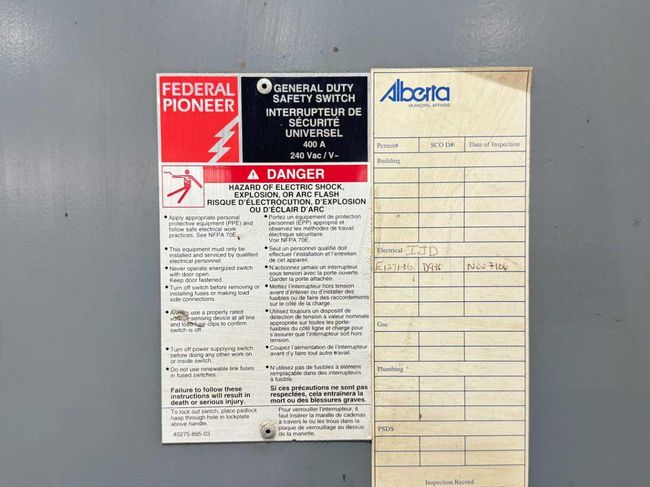 FEDERAL
PIONEER
GENERAL DUTY
SAFETY SWITCH
INTERRUPTEUR DE
SÉCURITÉ
UNIVERSEL
400 A
240 Vac / V~
DANGER
HAZARD OF ELECTRIC SHOCK,
EXPLOSION, OR ARC FLASH
RISQUE D'ÉLECTROCUTION, D'EXPLOSION
OU D'ÉCLAIR D'ARC
• Apply appropriate personal
protective equipment (PPE) and
follow safe electrical work
practices. See NFPA 70E.
• This equipment must only be
installed and serviced by qualified
electrical personnel.
• Never operate energized switch
with door open.
Keep door fastened.
• Turn off switch before removing or
installing fuses or making load
side connections.
• Always use a properly rated
voltage sensing device at all line
and load fuse clips to confirm
switch is off.
• Turn off power supplying switch
before doing any other work on
or inside switch.
• Do not use renewable link fuses
in fused switches.
Failure to follow these
instructions will result in
death or serious injury.
To lock out switch, place padlock
hasp through hole in lockplate
above handle.
40275-895-03
• Portez un équipement de protection
personnel (ÉPP) approprié et
observez les méthodes de travail
électrique sécuritaire.
Voir NFPA 70E.
• Seul un personnel qualifié doit
effectuer l'installation et l'entretien
de cet appareil.
• N'actionnez jamais un interrupteur
sous tension avec la porte ouverte.
Garder la porte attachée.
• Mettez l'interrupteur hors tension
avant d'enlever ou d'installer des
fusibles ou de faire des raccordements
sur le côté de la charge.
• Utilisez toujours un dispositif de
détection de tension à valeur nominale
appropriée sur toutes les porte-
fusibles du côté ligne et charge pour
s'assurer que l'interrupteur soit hors
tension.
• Coupez l'alimentation de l'interrupteur
avant d'y faire tout autre travail.
• N'utilisez pas de fusibles à élément
remplaçable dans des interrupteurs
à fusible.
Si ces précautions ne sont pas
respectées, cela entraînera la
mort ou des blessures graves.
Pour verrouiller l'interrupteur, il
faut insérer la manille de cadenas
à travers le ou les trous dans la
plaque de verrouillage au dessus
de la manette.
Alberta
MUNICIPAL AFFAIRS
Permit# SCO D# Date of Inspection
Building
Electrical IJD
Nov 7/06
Gas
Plumbing
PSDS
Inspection Record